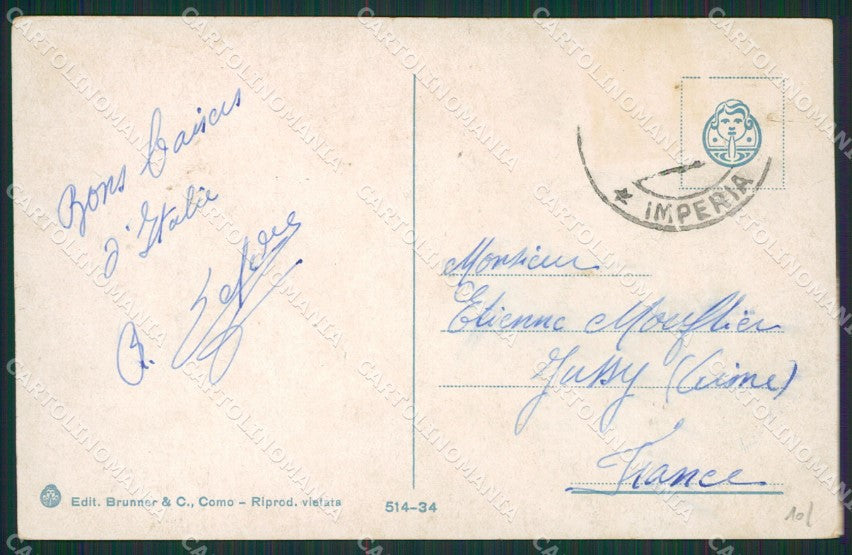 Bons baisers
d'Italie
R. Lefèvre
IMPERIA
Monsieur
Etienne Mouflier
Jussy (Aisne)
France
Edit. Brunner & C., Como - Riprod. vietata
514-34
CARTOLINOMANIA